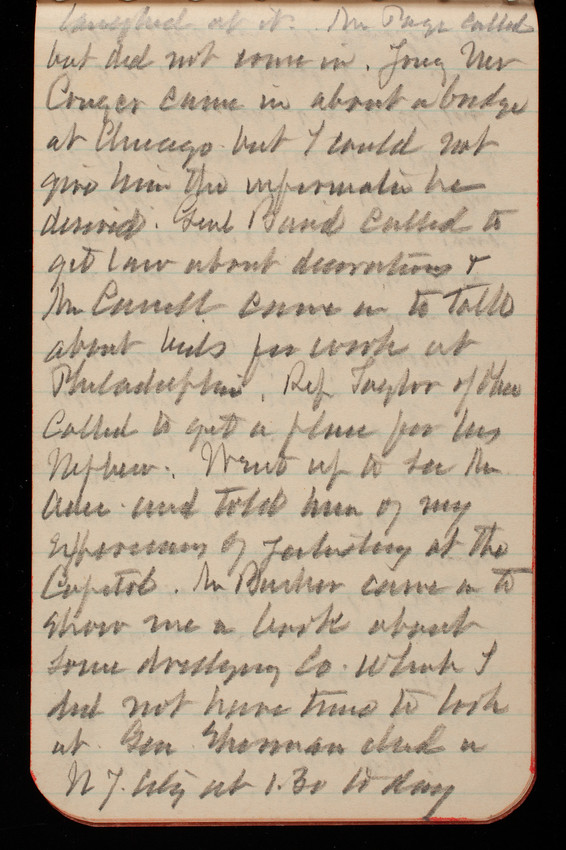 laughed at it. Mr Page called
but did not come in.
Conger came in about a bridge
at Chicago but I could not
give him the informatin he
desired. Genl Baird called to
get law about decorations &
Mr Carroll came in to talk
about bids for work at
Philadelphia. Rep Taylor of Ohio
called to get a place for his
Nephew. Went up to see Mr
and told him of my
experiences of yesterday at the
Capitol. Mr came in to
show me a book about
some dredging Co. which I
did not have time to look
at. Gen Sherman died in
N Y. City at 1.30 to day